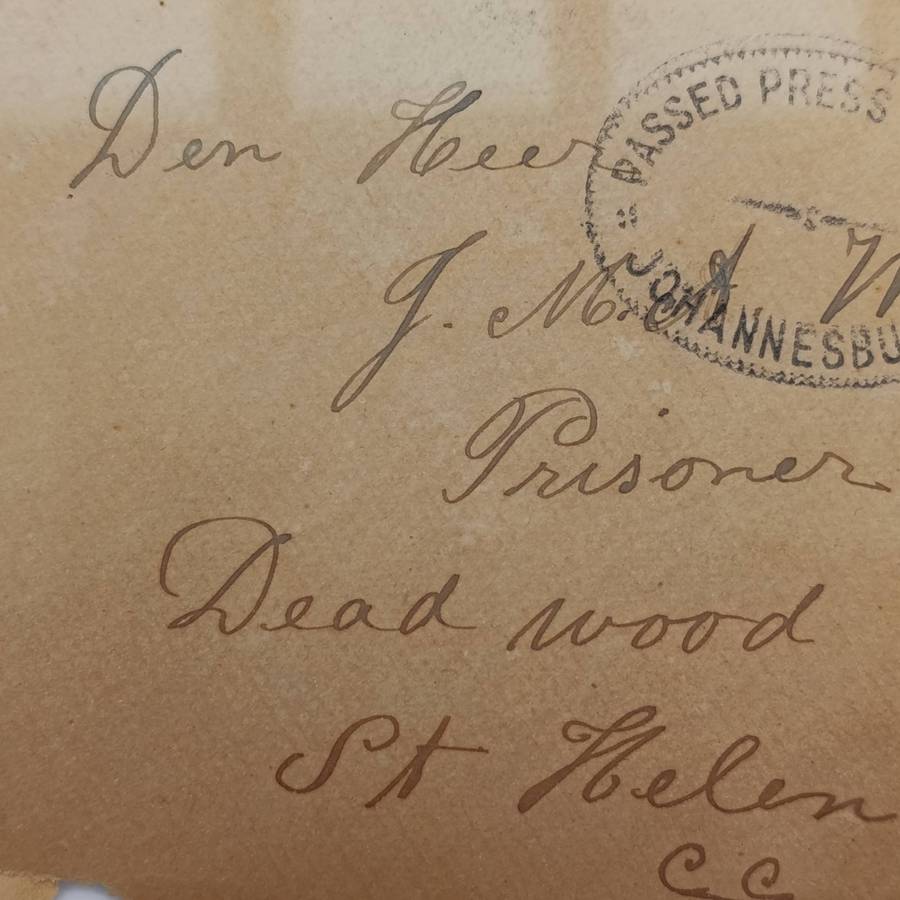 Den Heer
PASSED PRESS
J. M. A. W
JOHANNESBU
Prisoner
Dead wood
St Helen
CC